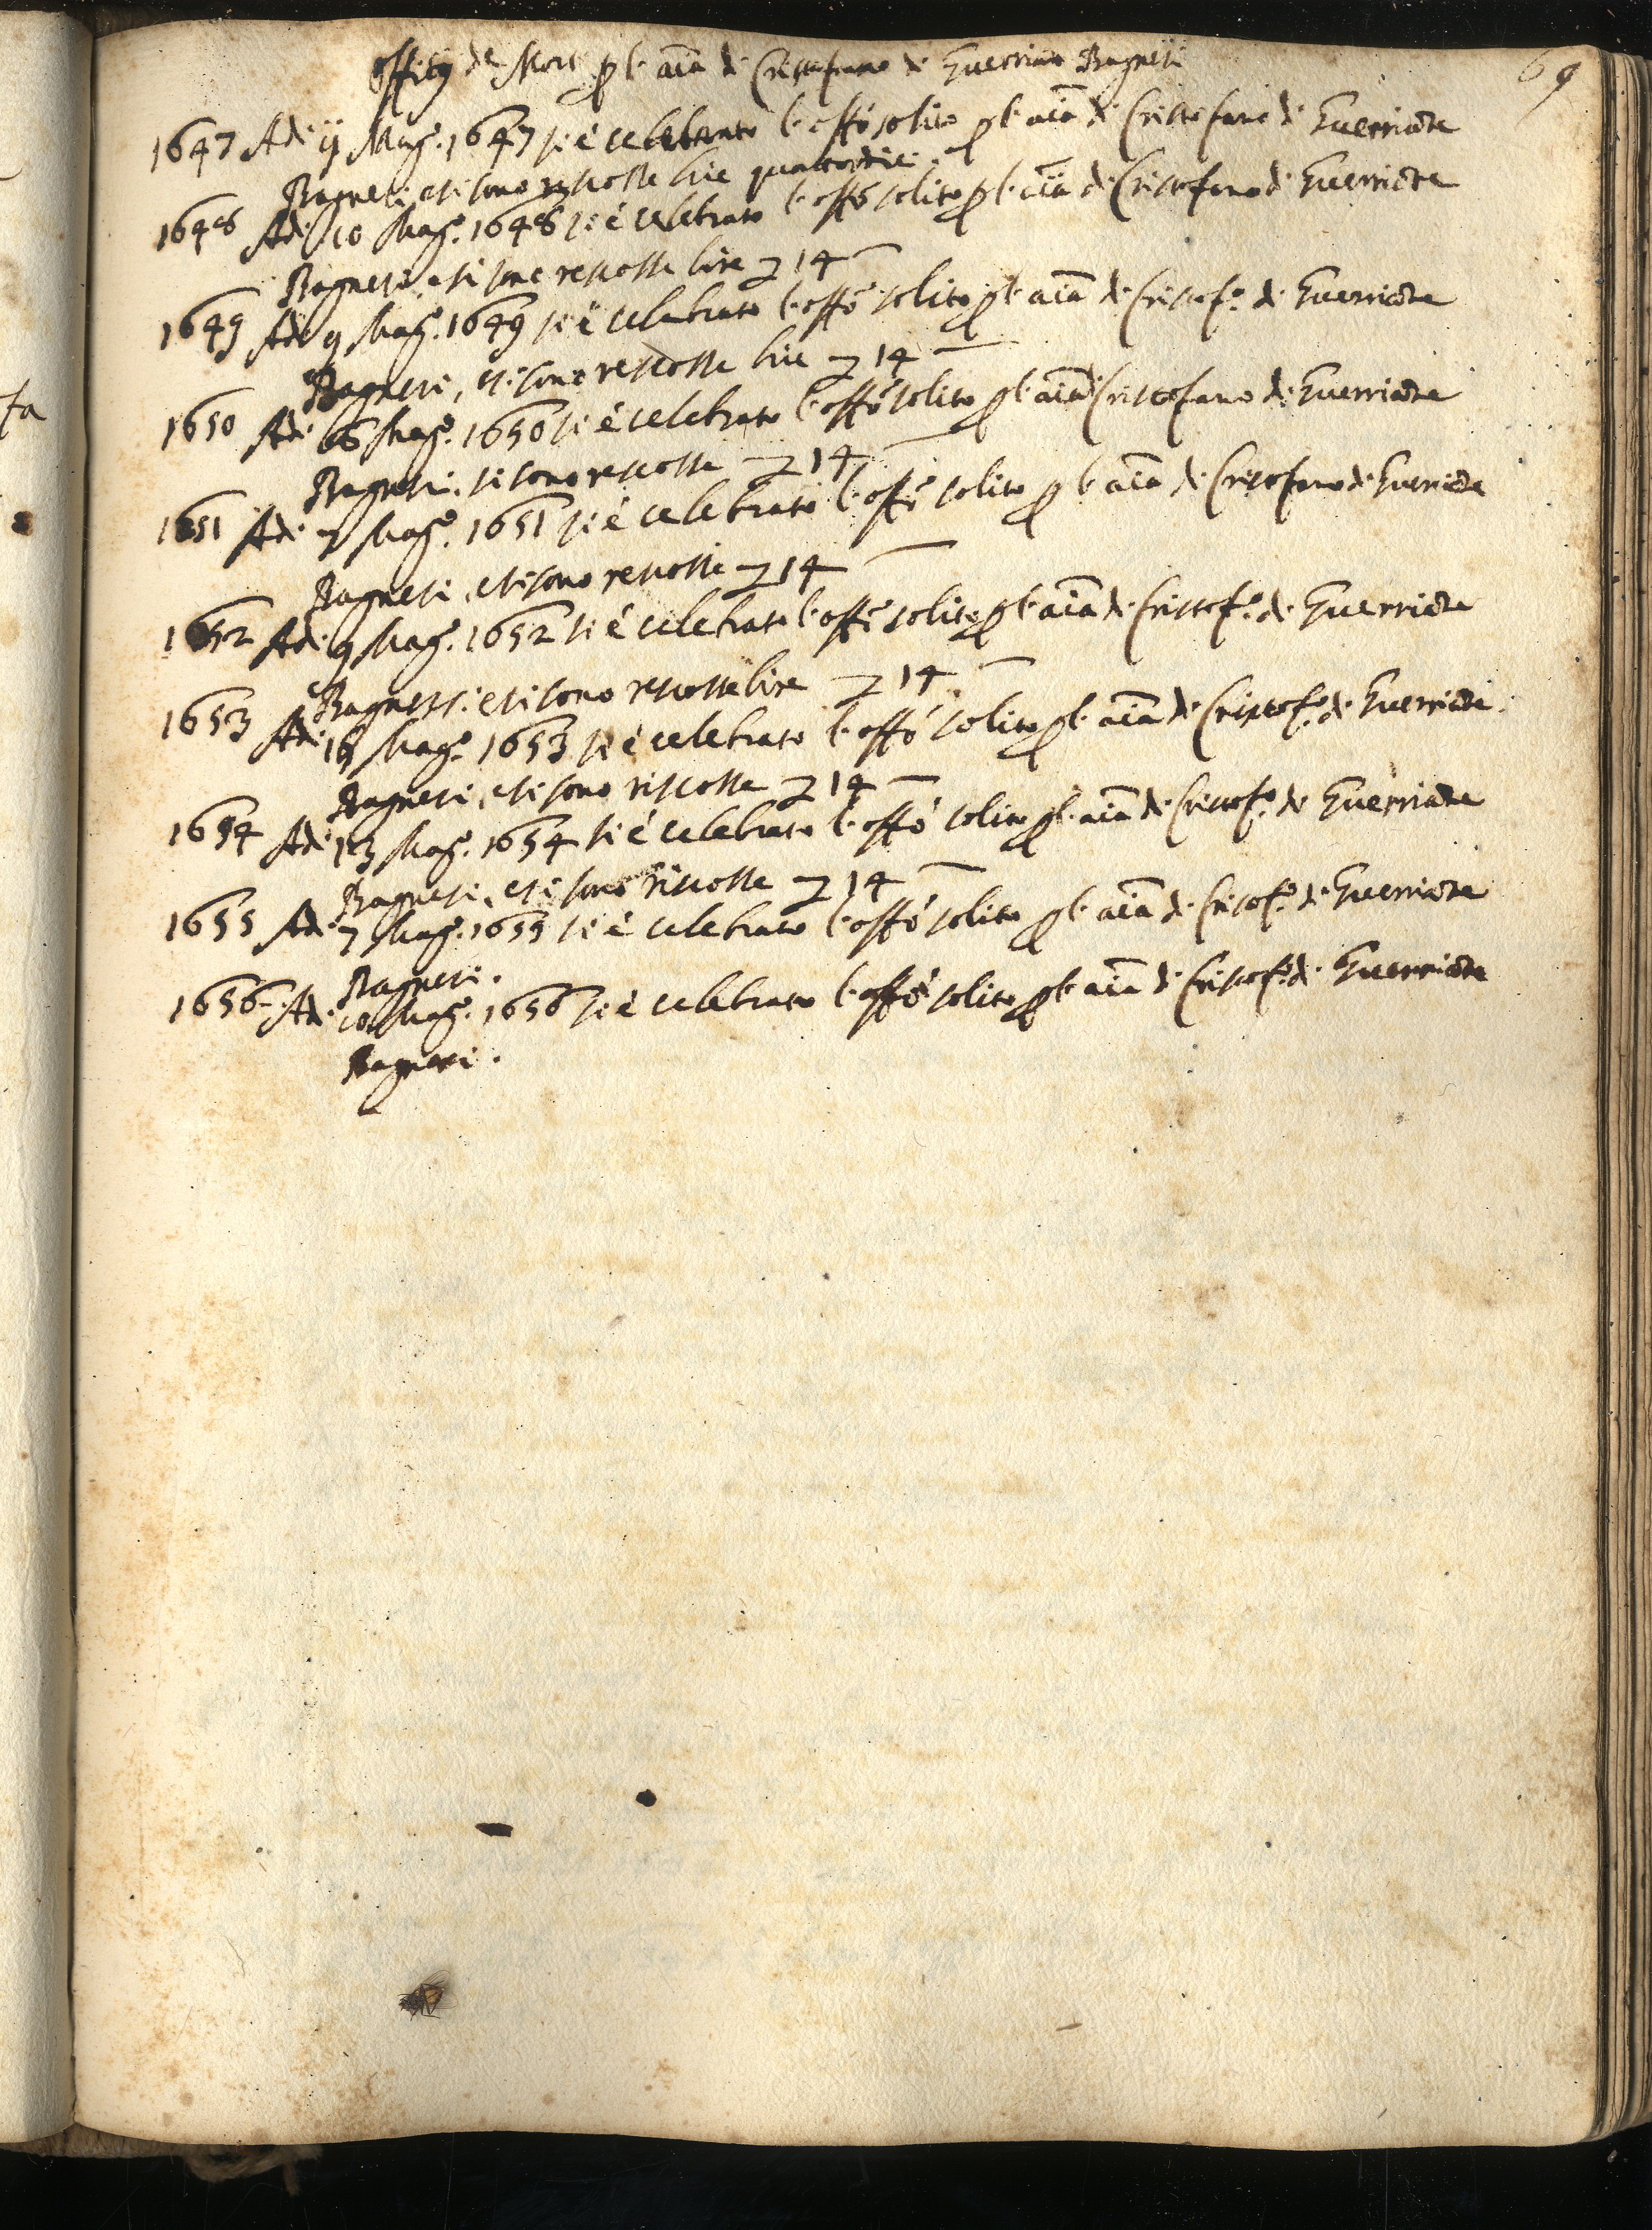 69
Offitij de Morti p l'aīa di Cristofano di Guerriante Bagnesi
1647 Adi ij Mag.o 1647 si è celebrato l'offō solito p l'aīa di Cristofano di Guerriante
Bagnesi, et si sono riscosse lire quattordici.
1648 Adi 10 Mag.o 1648 si è celebrato l'offō solito p l'aīa di Cristofano di Guerriante
Bagnesi, et si sono rescosse lire 14
1649 Adi 9 Mag.o 1649 si è celebrato l'offō solito p l'aīa di Cristof.o di Guerriante
Bagnesi, et si sono rescosse lire 14
1650 Adi Mag.o 1650 si è celebrato l'offō solito p l'aīa di Cristofano di Guerriante
Bagnesi, si sono rescosse 14
1651 Adi 7 Mag.o 1651 si è celebrato l'offō solito p l'aīa di Cristofano di Guerriante
Bagnesi, et si sono rescosse 14
1652 Adi 9 Mag.o 1652 si è celebrato l'offō solito p l'aīa di Cristof.o di Guerriante
Bagnesi et si sono rescosse lire 14
1653 Adi Mag.o 1653 si è celebrato l'offō solito p l'aīa di Cristof.o di Guerriante
Bagnesi, et si sono riscosse 14
1654 Adi 13 Mag.o 1654 si è celebrato l'offō solito p l'aīa di Cristof.o di Guerriante
Bagnesi, et si sono riscosse 14
1655 Adi 7 Mag.o 1655 si è celebrato l'offō solito p l'aīa di Cristof.o di Guerriante
Bagnesi.
1656 Adi 10 Mag.o 1656 si è celebrato l'offō solito p l'aīa di Cristof.o di Guerriante
Bagnesi.